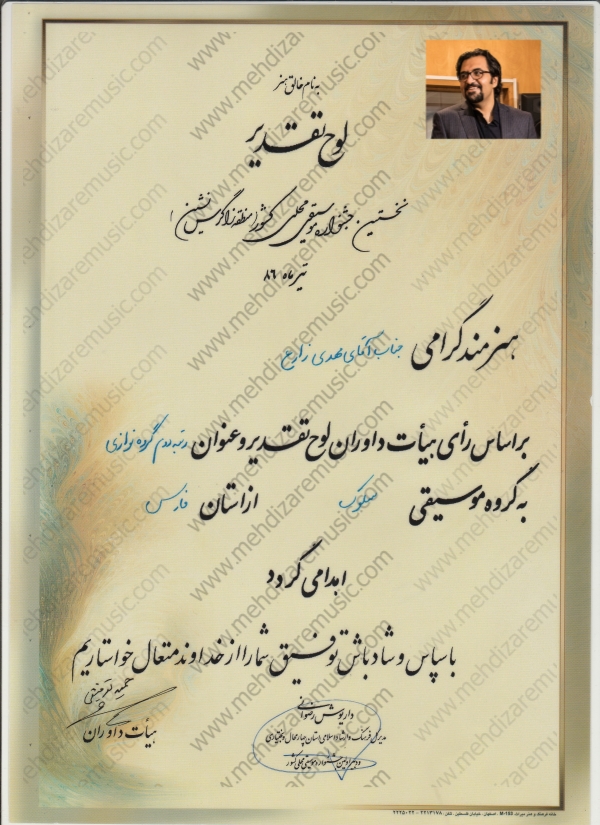 به نام خالق هنر
لوح تقدیر
نخستین جشنواره موسیقی محلی کشور (منطقه زاگرس نشین)
تیر ماه ۸۶
هنرمند گرامی جناب آقای مهدی زارع
بر اساس رأی هیأت داوران لوح تقدیر و عنوان رتبه دوم گروه نوازی
به گروه موسیقی از استان فارس
اهدا می گردد
با سپاس و شاد باش توفیق شما را از خداوند متعال خواستاریم
هیأت داوران
داریوش رضوانی
مدیر کل فرهنگ و ارشاد اسلامی استان چهارمحال و بختیاری
و دبیر اولین جشنواره موسیقی محلی کشور
www.mehdizaremusic.com